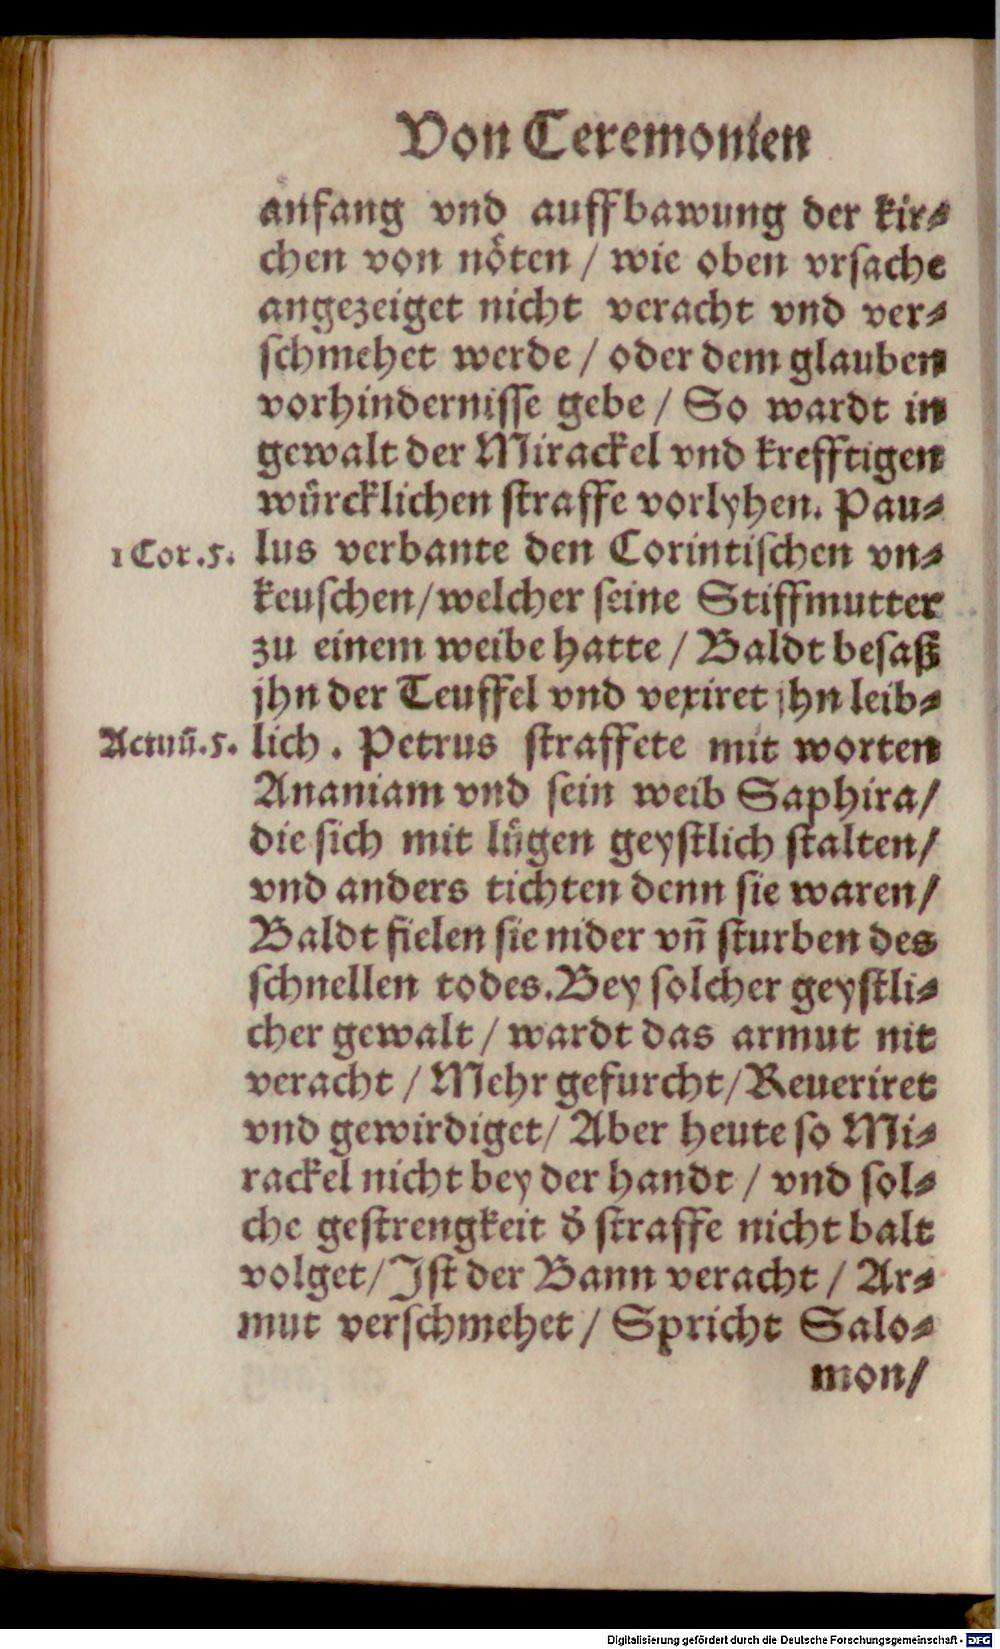 Von Ceremonien
anfang vnd auffbawung der kir⸗
chen von nöten / wie oben vrsache
angezeiget nicht veracht vnd ver⸗
schmehet werde / oder dem glauben
vorhindernisse gebe / So wardt in
gewalt der Mirackel vnd krefftigen
würcklichen straffe vorlyhen. Pau⸗
1 Cor. 5. lus verbante den Corintischen vn⸗
keuschen / welcher seine Stiffmutter
zu einem weibe hatte / Baldt besaß
jhn der Teuffel vnd vexiret jhn leib⸗
Actuū. 5. lich. Petrus straffete mit worten
Ananiam vnd sein weib Saphira /
die sich mit lügen geystlich stalten /
vnd anders tichten denn sie waren /
Baldt fielen sie nider vn̄ sturben des
schnellen todes. Bey solcher geystli⸗
cher gewalt / wardt das armut nit
veracht / Mehr gefurcht / Reueriret
vnd gewirdiget / Aber heute so Mi⸗
rackel nicht bey der handt / vnd sol⸗
che gestrengkeit d̄ straffe nicht balt
volget / Ist der Bann veracht / Ar⸗
mut verschmehet / Spricht Salo⸗
mon /
Digitalisierung gefördert durch die Deutsche Forschungsgemeinschaft - DFG